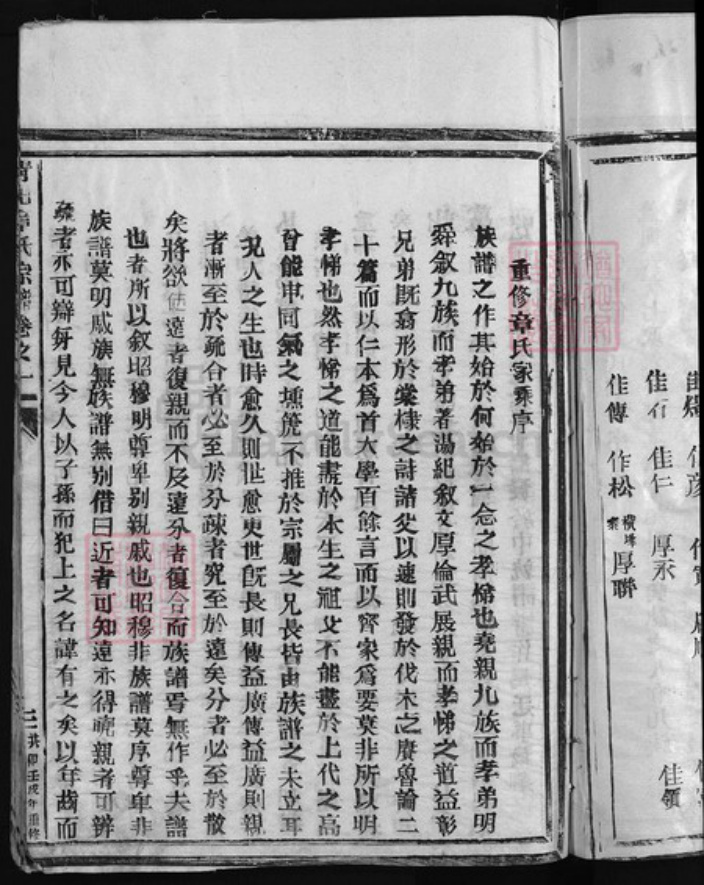 佳傳 作松 橫峰案 厚聯
佳石 佳仁 厚永
佳領
重修章氏家乘序
族譜之作其始於何始於一念之孝悌也堯親九族而孝弟明
舜叙九族而孝弟著湯紀叙文厚倫武展親而孝悌之道益彰
兄弟既翕形於棠棣之詩諸父以速則發於伐木之賡魯論二
十篇而以仁本爲首大學百餘言而以齊家爲要莫非所以明
孝悌也然孝悌之道能盡於本生之祖父不能盡於上代之高
曾能申同氣之壎篪不推於宗屬之兄長皆由族譜之未立耳
況人之生也時愈久則世愈更世既長則傳益廣傳益廣則親
者漸至於疏合者必至於分疎者究至於遠矣分者必至於散
矣將欲 遠者復親而不及遠分者復合而族譜焉無作乎夫譜
也者所以叙昭穆明尊卑別親戚也昭穆非族譜莫序尊卑非
族譜莫明戚族無族譜無別借曰近者可知遠亦得曉親者可辨
疏者亦可辯每見今人以子孫而犯上之名諱有之矣以年齒而
章氏宗譜卷之一
壬戌年重修